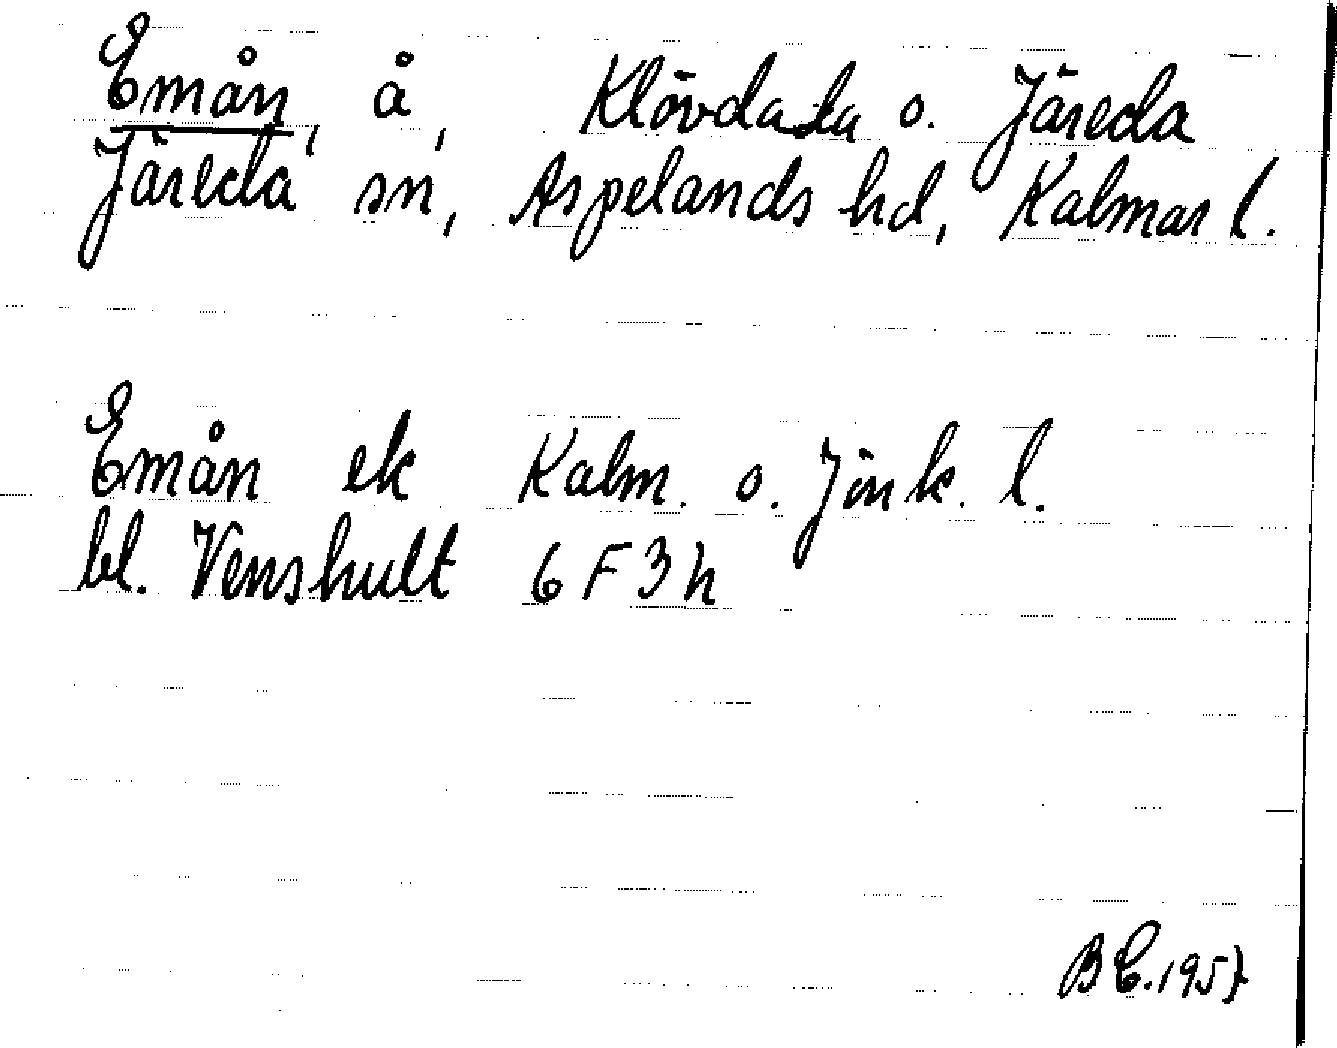 Emån, å, Klövdala o. Järeda
Järeda sn, Aspelands hd, Kalmar l.
Emån ek Kalm. o. Jönk. l.
bl. Venshult 6 F 3 h
B E. 1957